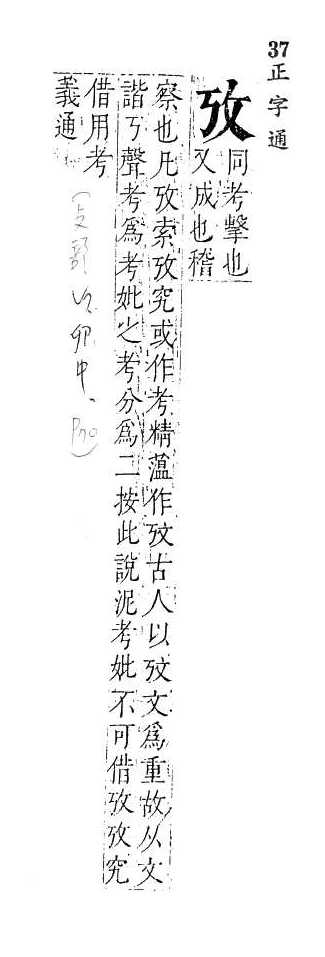 37正字通
攷
同考擊也
又成也稽
察也凡攷索攷究或作考精薀作攷古人以攷文爲重故从文
諧丂聲考爲考妣之考分爲二按此說泥考妣不可借攷攷究
借用考
義通